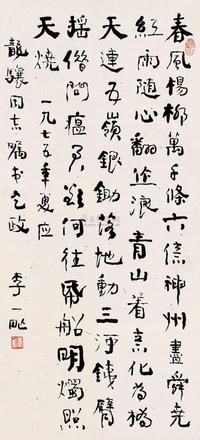 春风杨柳万千条六亿神州尽舜尧
红雨随心翻作浪青山着意化为桥
天连五嶺银锄落地动三河铁臂
摇借问瘟君欲何往纸船明烛照
天燒 一九七五年夏应
龍驤同志嘱书之政
李一氓